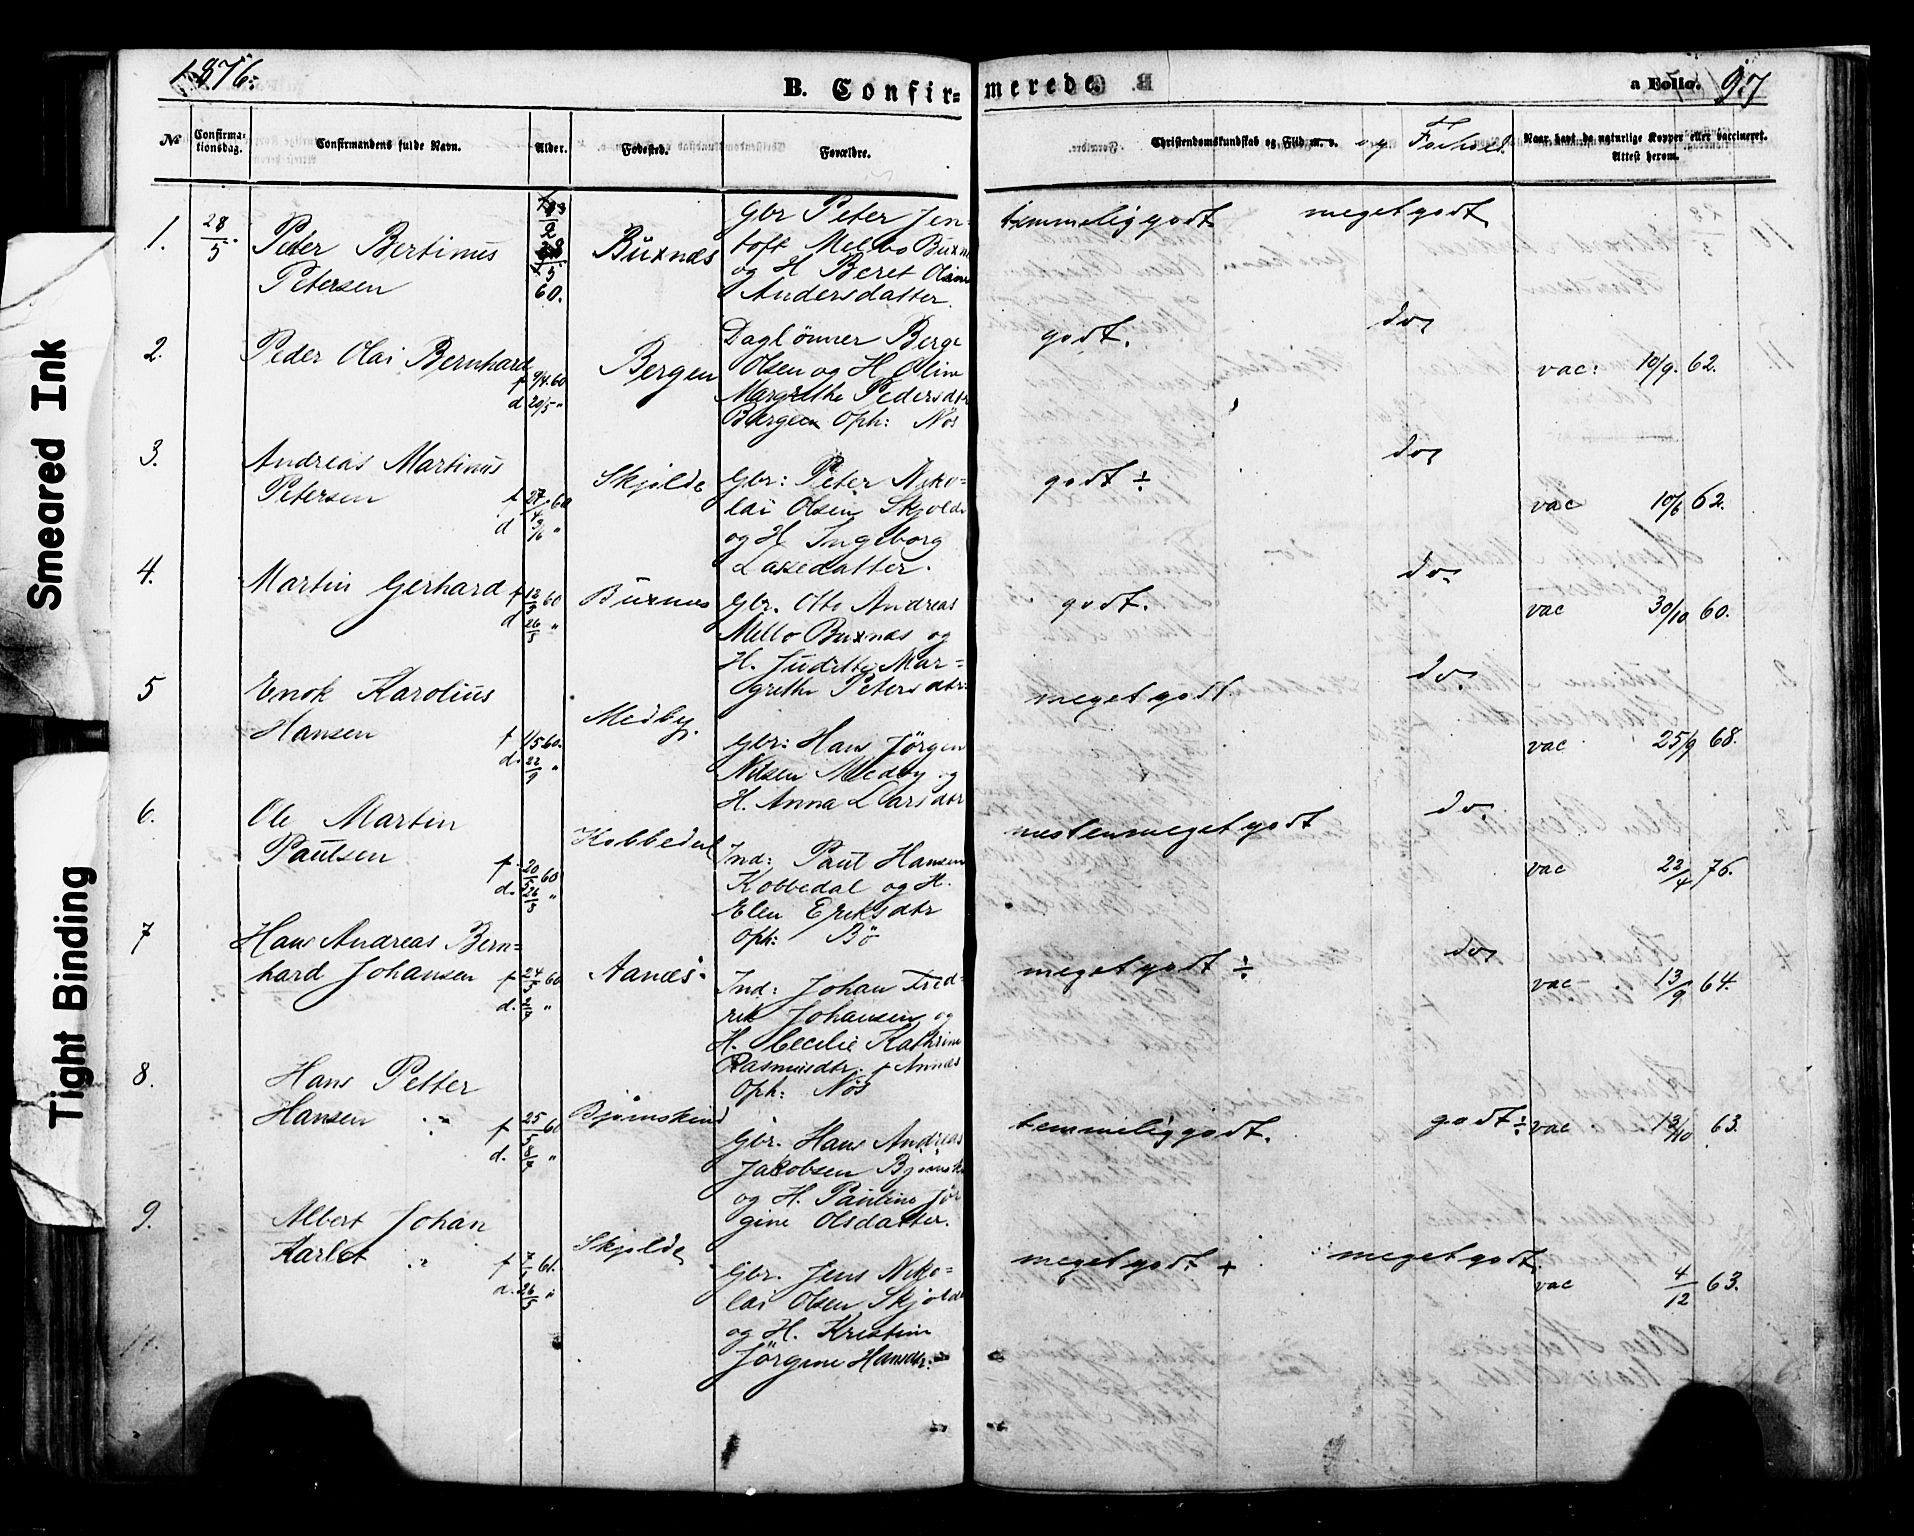 1876.
B. Confir-
merede.
a Folio. 97
№
Confirma-
tionsdag.
Confirmandens fulde Navn.
Alder.
Fødested.
Forældre.
Christendomskundskab og Flid m. v. og Forhold.
Naar havt de naturlige Kopper eller vaccineret.
Attest herom.
1. 28/5. Peter Bertinus
Petersen
60.
Buxnæs
Gbr Peter Jen-
toft Melbo Buxnæs
og H Beret Oline
Andersdatter.
temmelig godt. meget godt
2. Peder Olai Bernhard
f 9/4. 60
d 20/5 "
Bergen
Daglönner Berge
Olsen og H. Oline
Margrethe Pedersdtr
Bergen Oph: Nös
godt. do
vac: 10/9. 62.
3. Andreas Martinus
Petersen
f 27/4 60
d 3/6 "
Skjolde
Gbr: Peter Niko-
lai Olsen Skjolde
og H Ingeborg
Laxedatter.
godt ÷ do
vac 10/6 62.
4. Martin Gerhard
f 12/3 60
d 26/5 "
Buxnæs
Gbr. Otto Andreas
Melbo Buxnæs og
H. Judithe Mar-
grethe Petersdtr.
godt. do
vac 30/10 60.
5 Enok Karolius
Hansen
f 1/5 60.
d. 22/9 "
Medby.
Gbr: Hans Jörgen
Nilsen Medby og
H. Anna Larsdtr
meget godt do.
vac 25/9 68.
6. Ole Martin
Paulsen
f. 20/5 60
d. 26/5 "
Kobbedal
Ind: Paul Hansen
Kobbedal og H.
Elen Eriksdtr
Oph: Bö
næsten meget godt do.
vac 22/4 76.
7 Hans Andreas Bern-
hard Johansen
f 24/5 60
d. "
Aanæs.
Ind: Johan Fred-
rik Johansen og
H. Cecilie Kathrine
Rasmusdtr. f Annæs
Oph: Nös
meget godt ÷ do
vac 13/9 64.
8. Hans Petter
Hansen
f 25/5 60
d. "
Bjørnskind
Gbr. Hans Andreas
Jakobsen Bjørnsk
og H. Pauline Jör
gine Olsdatter.
temmelig godt. godt ÷
vac 13/10 63.
9. Albert Johan
Karlot
f 61.
d. 26/5 "
Skjolde
Gbr. Jens Niko-
lai Olsen Skjolde
og H. Kristine
Jörgine Hansdtr.
meget godt + meget godt.
vac 4/12 63.
Smeared Ink
Tight Binding